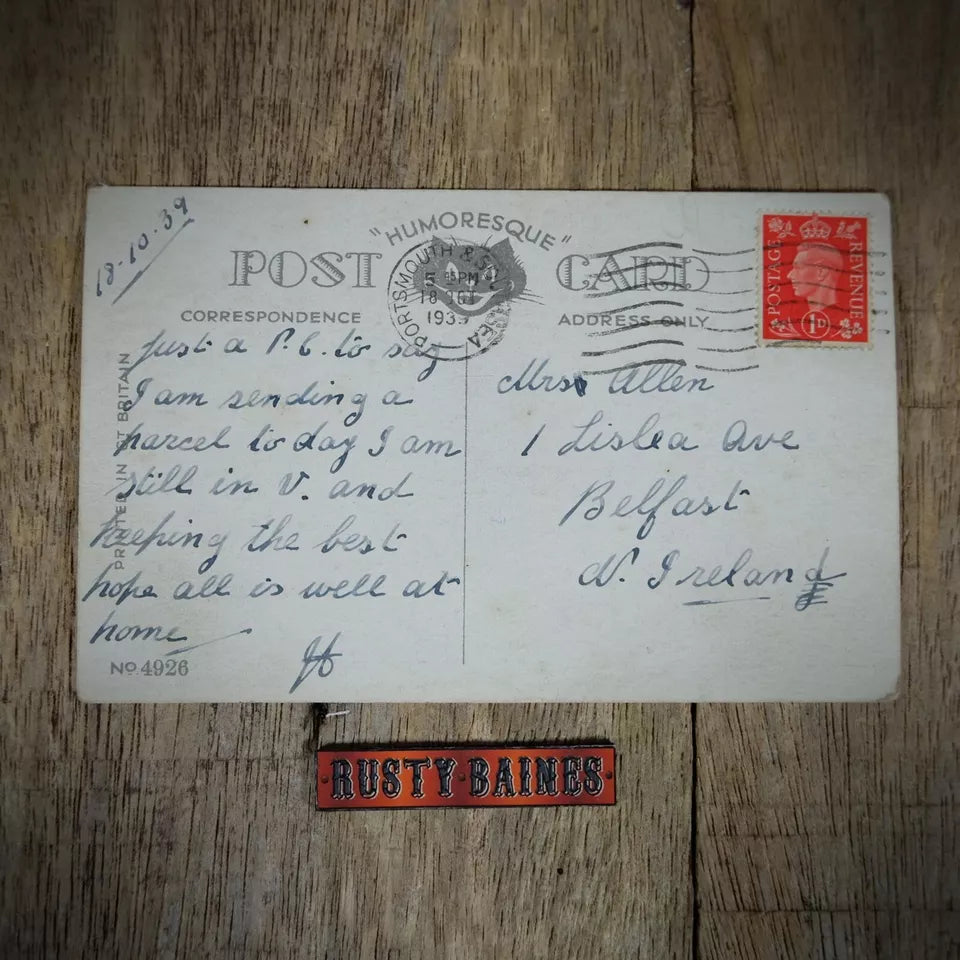 18-10-39
"HUMORESQUE"
POST CARD
PORTSMOUTH & SOUTHSEA
5 PM
18 OCT
1939
POSTAGE REVENUE
1D
CORRESPONDENCE
ADDRESS ONLY
PRINTED IN GT BRITAIN
Just a P.C. to say
I am sending a
parcel to day I am
still in V. and
keeping the best
hope all is well at
home
Mrs Allen
1 Lislea Ave
Belfast
N. Ireland
No. 4926
RUSTY·BAINES